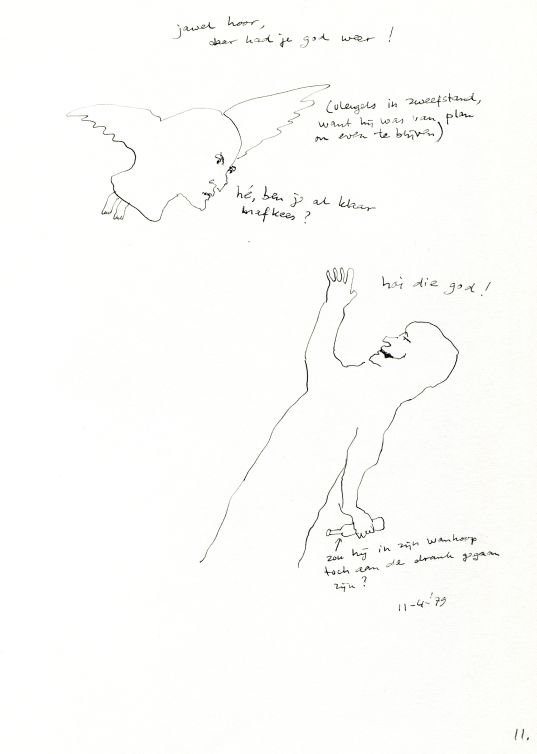 jawel hoor,
daar had je god weer !
(vleugels in zweefstand,
want hij was van plan
om even te blijven)
hé, ben je al klaar
brafkees ?
hoi die god !
zou hij in zijn wanhoop
toch aan de drank gegaan
zijn ?
11-4-'79
11.